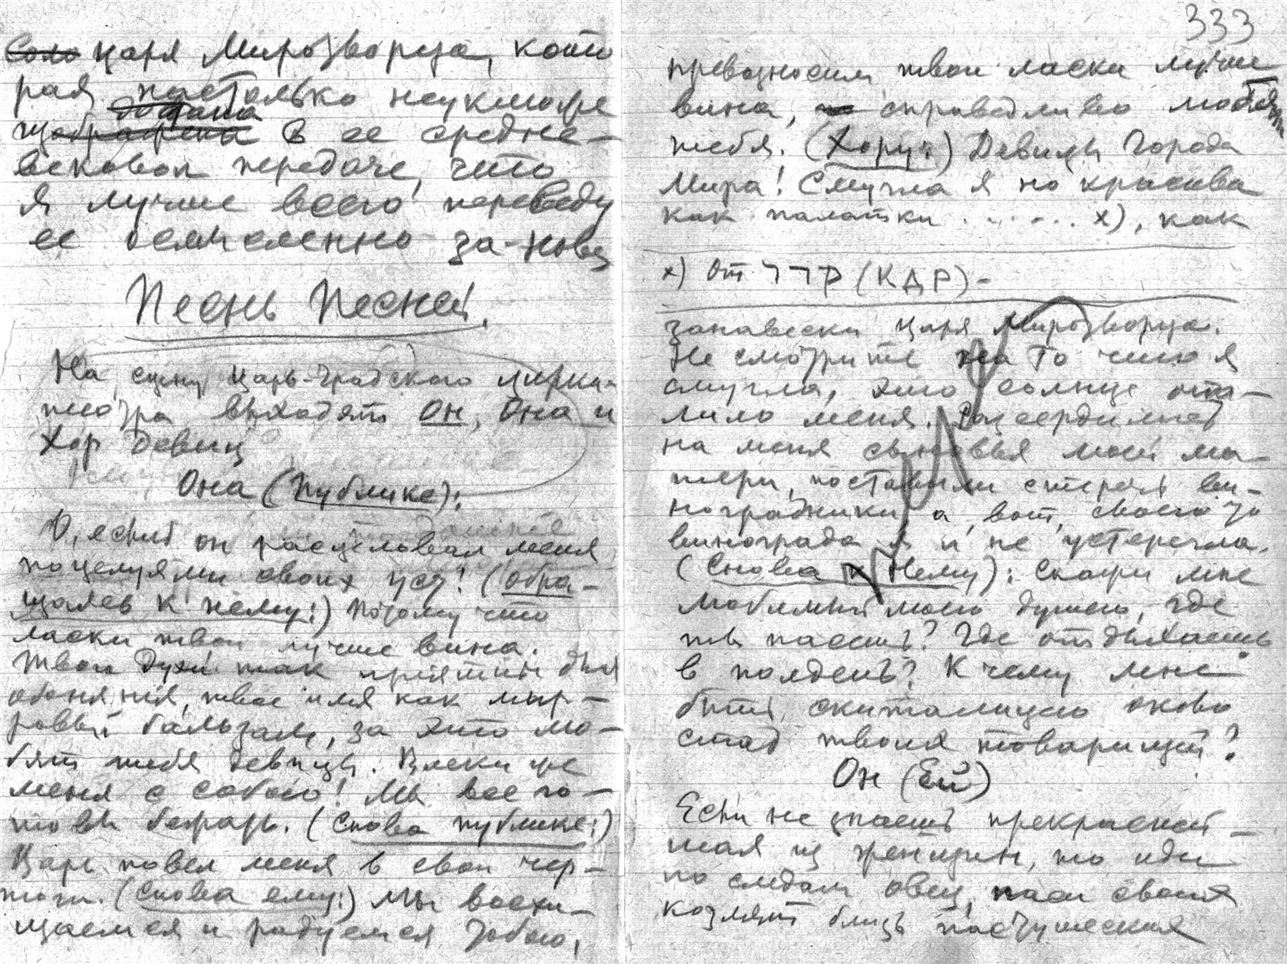 царя Миротворца, кото
рая настолько неуклюже
подана в ее средне-
вековой передаче, что
я лучше всего переведу
ее осмысленно за-ново
Песнь Песней.
На сцену Царь-Градского цирка-
театра выходят Он, Она и
Хор Девиц
Она (Публике):
О, если б он расцеловал меня
поцелуями своих уст! (обра-
щаясь к нему:) потому что
ласки твои лучше вина.
Твои духи так приятны для
обоняния, твое имя как мир-
ровый бальзам, за это лю-
бят тебя девицы. Влеки же
меня с собою! Мы все го-
товы бежать. (Снова публике:)
Царь повел меня в свои чер-
тоги. (Снова ему:) Мы восхи-
щаемся и радуемся Тобою,
333
превозносим твои ласки лучше
вина, справедливо любят
тебя. (Хору:) Девицы Города
Мира! Смугла я но красива
как палатки . . . . . х), как
х) От ררק (КДР)-
занавески царя Миротворца.
Не смотрите на то что я
смугла, это солнце опа-
лило меня. Рассердились
на меня сыновья моей ма-
тери, поставили стеречь ви-
ноградники, а, вот, своего то
винограда я и не устерегла.
(Снова к Нему): Скажи мне
любимый моею душею, где
ты пасешь? Где отдыхаешь
в полдень? К чему мне
быть скиталицею около
стад твоих товарищей?
Он (Ей)
Если не знаешь прекрасней-
шая из женщин, то иди
по следам овец, паси своих
козлят близь пастушеских